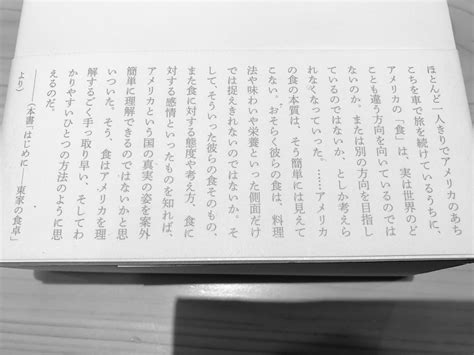 ほとんど一人きりでアメリカのあち
こちを車で旅を続けているうちに、
アメリカの「食」は、実は世界のど
ことも違う方向を向いているのでは
ないのか、または別の方向を目指し
ているのではないか、としか考えら
れなくなっていった。……アメリカ
の食の本質は、そう簡単には見えて
こない。おそらく彼らの食は、料理
法や味わいや栄養といった側面だけ
では捉えきれないのではないか。そ
して、そういった彼らの食そのもの、
また食に対する態度や考え方、食に
対する感情といったものを知れば、
アメリカという国の真実の姿を案外
簡単に理解できるのではないかと思
いついた。そう、食はアメリカを理
解するごく手っ取り早い、そしてわ
かりやすいひとつの方法のように思
えるのだ。
――(本書「はじめに──東家の食卓」
より)